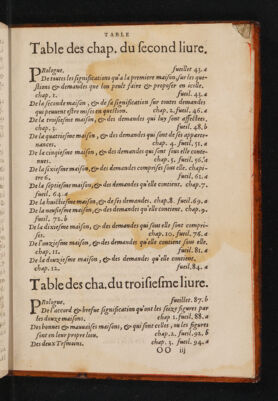 TABLE
Table des chap. du second liure.
PRologue. fueillet 43. a
De toutes les significations qu'a la premiere maison, sur les que-
stions & demandes que lon peult faire & proposer en icelle.
chap. 1. fueil. 43. a
De la seconde maison, & de sa signification sur toutes demandes
qui peuuent estre mises en question. chap. 2. fueil. 46. a
De la troisiesme maison, & des demandes qui luy sont affectées.
chap. 3. fueil. 48. b
De la quatriesme maison, & des demandes qui sont de ses appate-
nances. chap. 4. fueil. 51. a
De la cinqiesme maison, & des demandes qui sont sous elle conte-
nues. chap. 5. fueil. 56. a
De la sixiesme maison, & des demandes comprises sous elle. chapi-
tre 6. fueil. 61. a
De la septiesme maison, & des demandes qu'elle contient. chap. 7.
fueil. 64. a
De la huictiesme maison, & de ses demandes. chap. 8. fueil. 69. a
De la neufiesme maison, & des demandes qu'elle contient. chap. 9.
fueil. 72. b
De la dixiesme maison, & des demandes qui sous elle sont compri-
ses. chap. 10. fueil. 76. a
De l'onziesme maison, & des demandes qu'elle contient sous elle.
chap. 11. fueil. 81. a
De la douziesme maison, & des demandes qu'elle contient.
chap. 12. fueil. 84. a
Table des cha. du troisiesme liure.
PRologue. fueillet. 87. b
De l'accord & brefue signification qu'ont les seize figures par
les douze maisons. chap 1. fueil. 88. a
Des bonnes & mauuaises maisons, & qui sont celles, ou les figures
sont en leur propre lieu. chap. 2. fueil. 92. b
Des deux Tesmoins. chap. 3. fueil. 94. a
OO iij